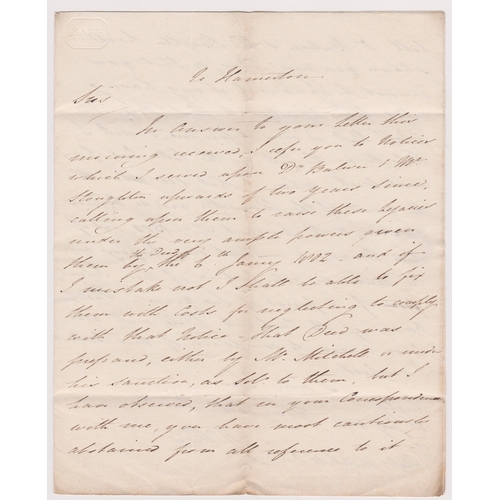 Sir,
In Answer to your Letter this
morning received, I refer you to Notices
which I served upon Dr. &
upwards of two years since,
calling upon them to raise these legacies
under the very ample powers given
the Deed of
them by, the 6th Jany - and if
I mistake not I shall be able to fix
them with Costs for neglecting to comply
with that Notice - That Deed was
prepared, either by Mr. Mitchell or under
his sanction, as Solr. to them, but I
have observed, that in your Correspondence
with me, you have most cautiously
abstained from all reference to it